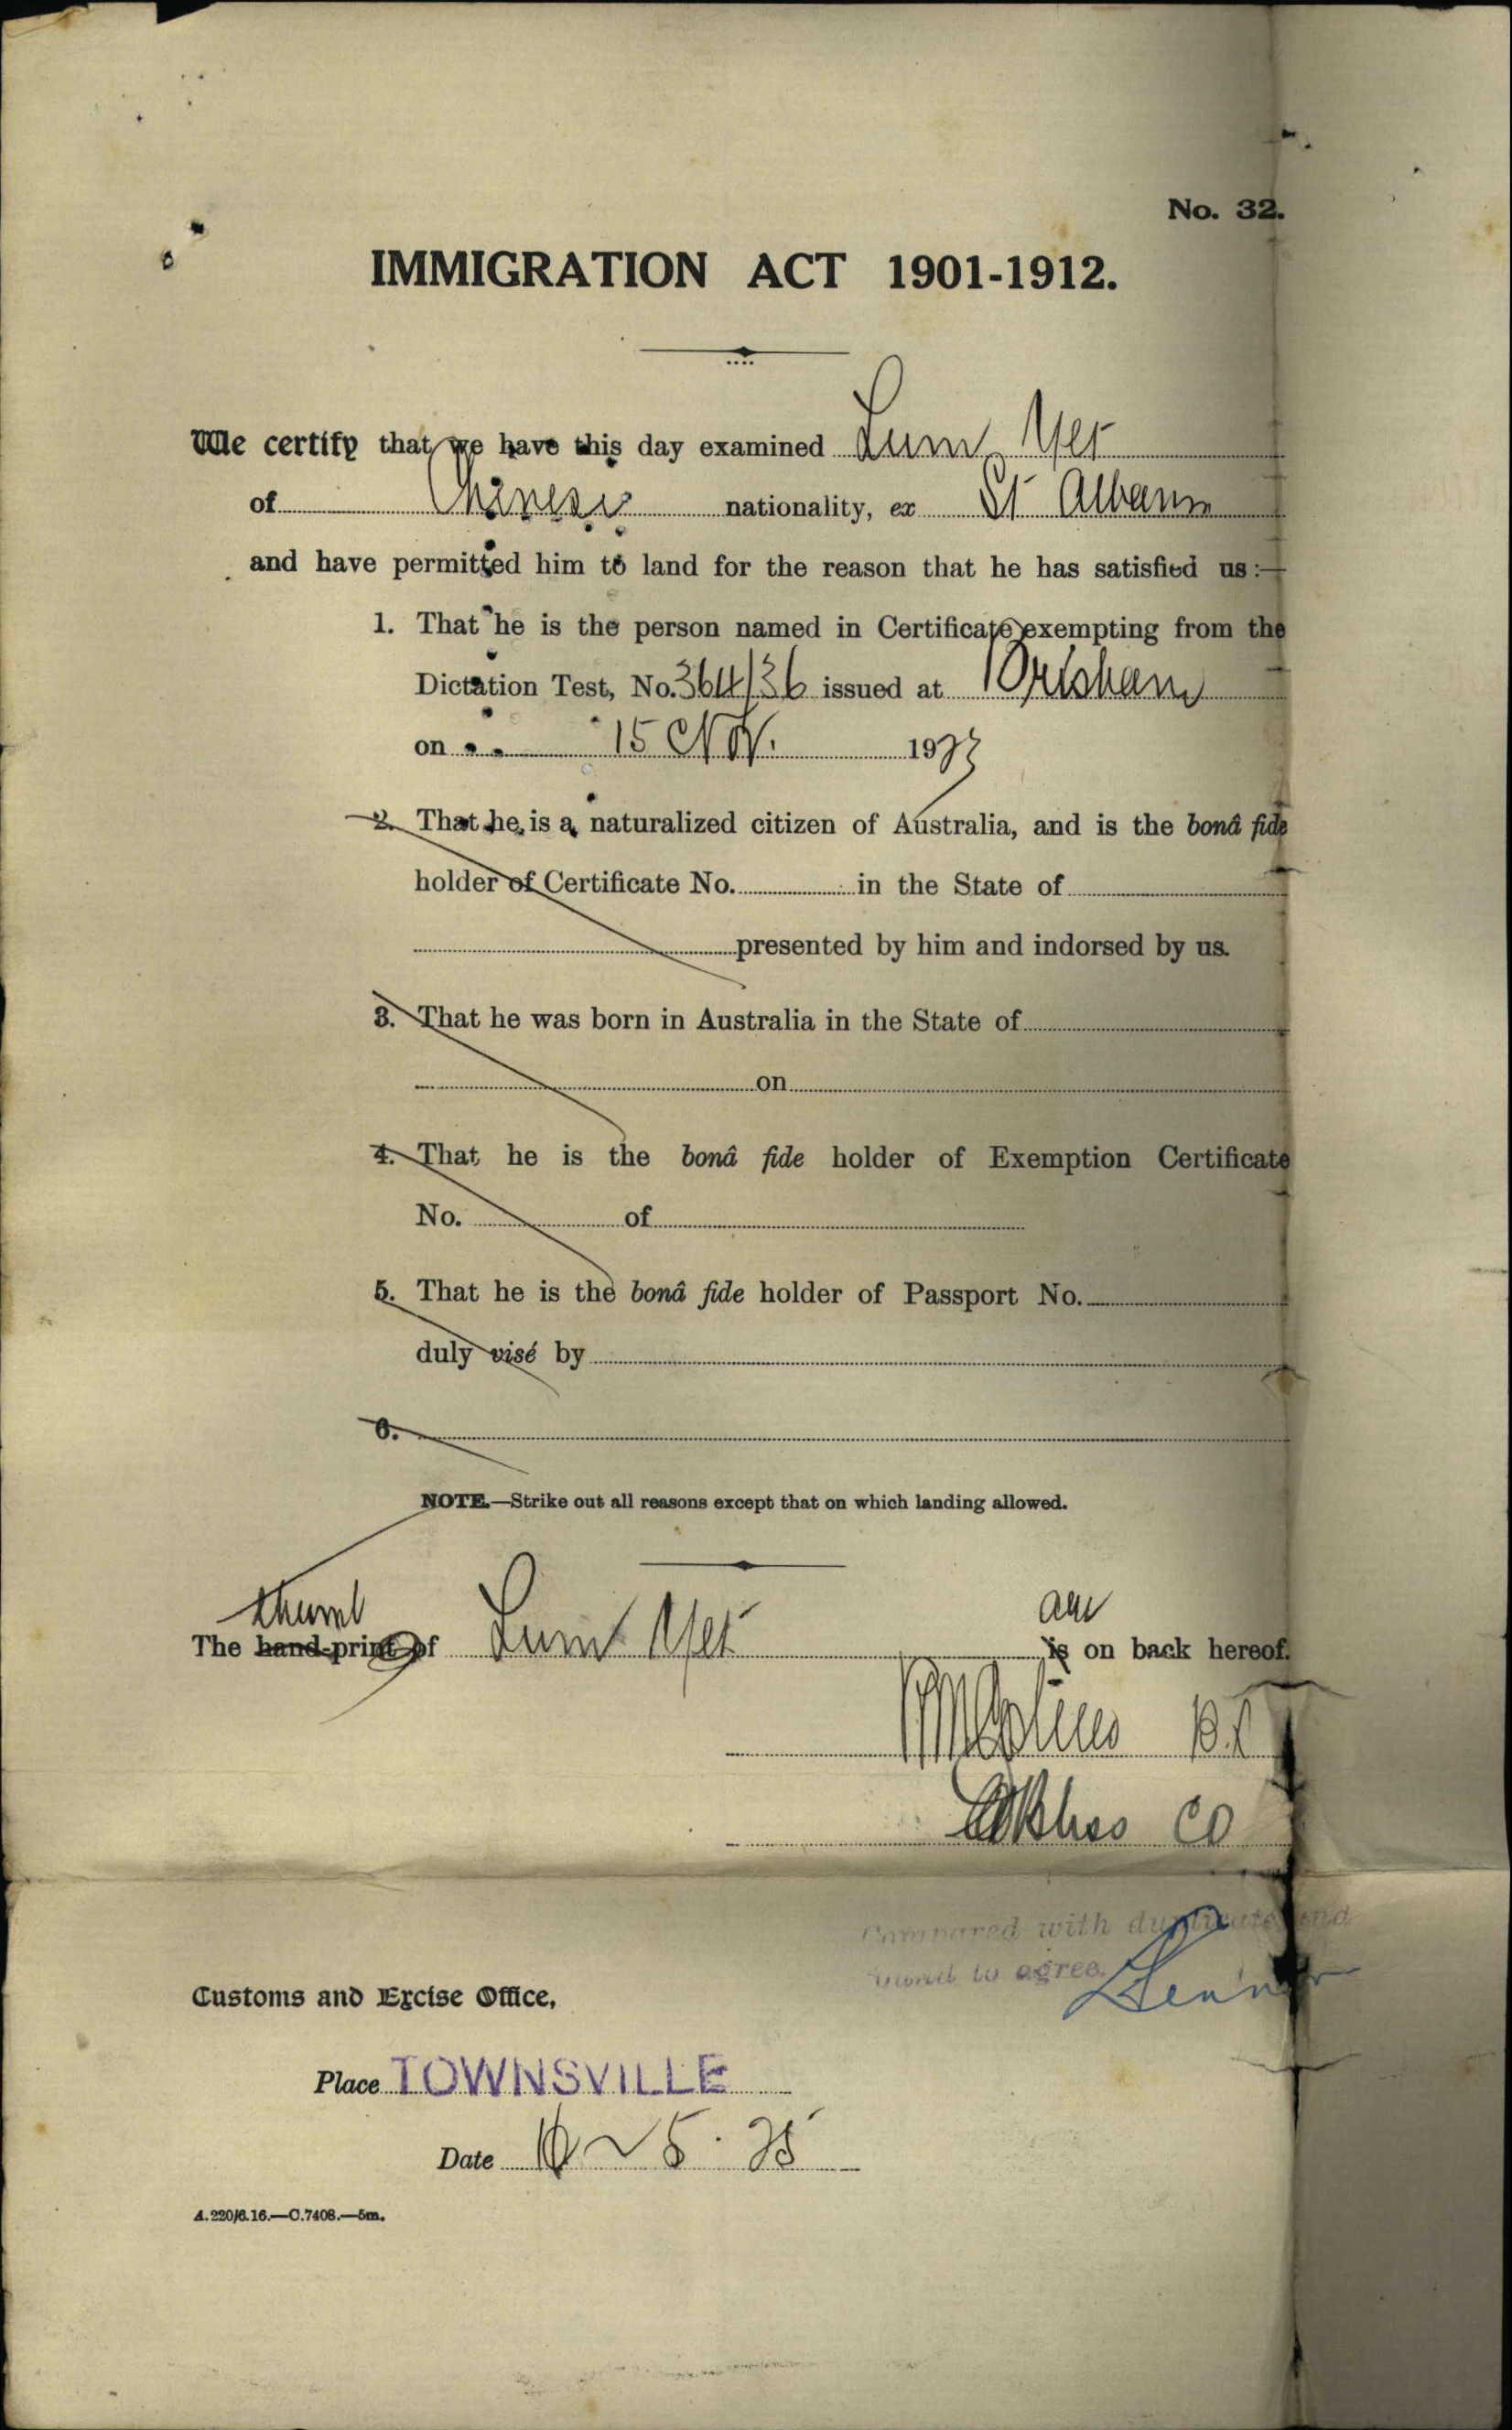 No. 32.
IMMIGRATION ACT 1901-1912.
We certify that we have this day examined Lum Yet
of Chinese nationality, ex St Albans
and have permitted him to land for the reason that he has satisfied us:—
1. That he is the person named in Certificate exempting from the
Dictation Test, No. 364/36 issued at Brisbane
on 15 Nov. 192
2. That he is a naturalized citizen of Australia, and is the bonâ fide
holder of Certificate No. in the State of
presented by him and indorsed by us.
3. That he was born in Australia in the State of
on
4. That he is the bonâ fide holder of Exemption Certificate
No. of
5. That he is the bonâ fide holder of Passport No.
duly visé by
6.
NOTE.—Strike out all reasons except that on which landing allowed.
thumb are
The hand-print of Lum Yet is on back hereof.
Compared with duplicate and
found to agree.
Customs and Excise Office,
Place TOWNSVILLE
Date 5. 25
A.220/6.16.—C.7408.—5m.